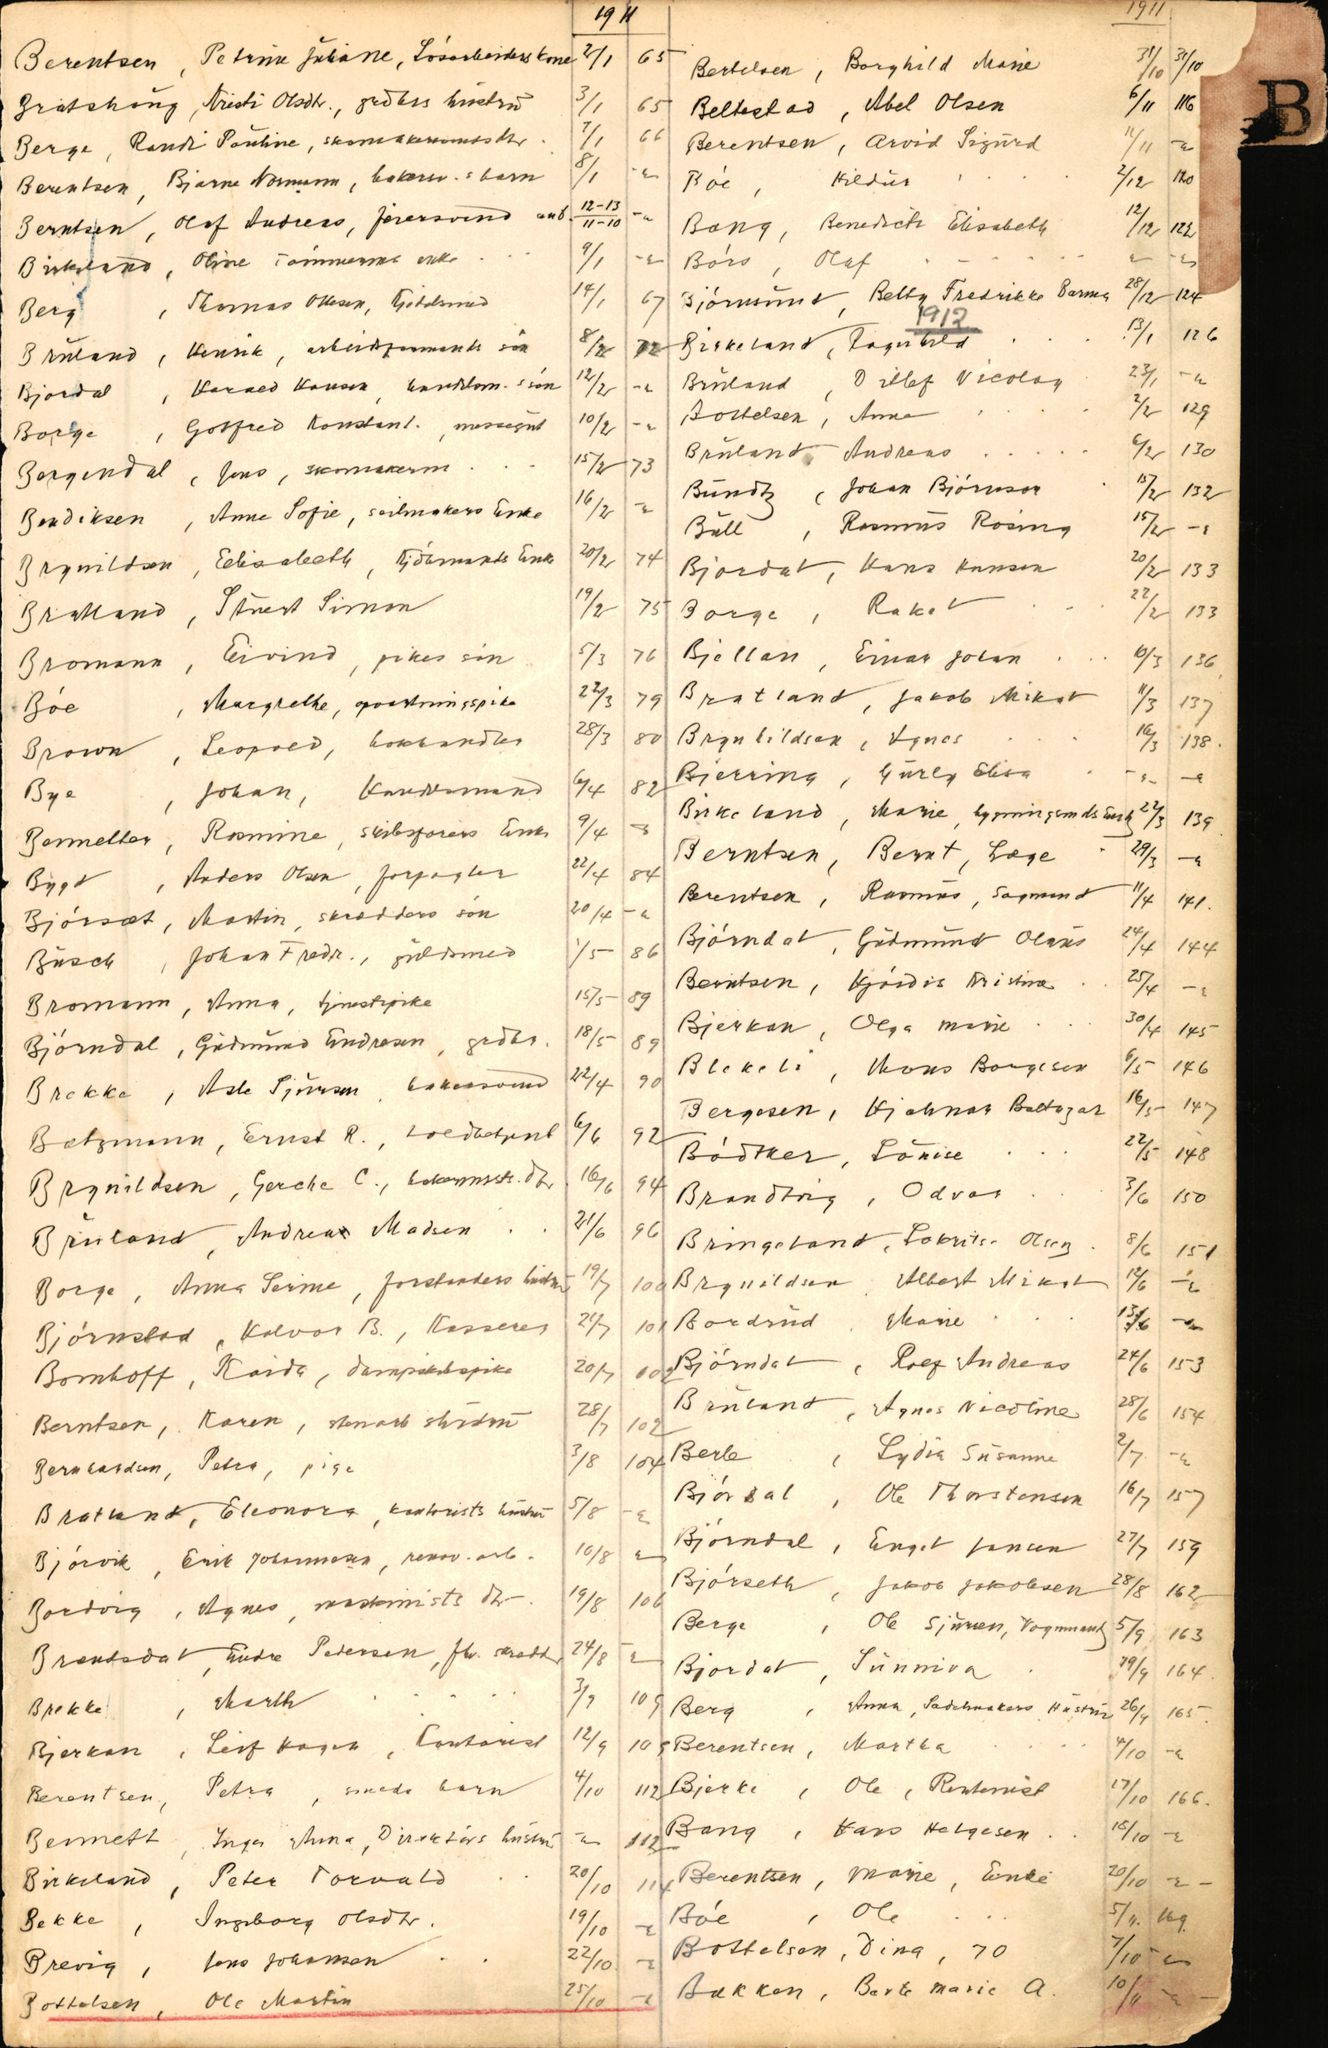 1911
Berentsen, Petrine Juliane, Lösarbeiders kone 2/1 65
Kristi Olsdtr., grdbrs hüstrü 3/1 65
Berge, Randi Pauline, 7/1 66
Berentsen, Bjarne Normann, bakersv. s barn 8/1 -"-
Berntsen, Olaf Andreas, 12-13/11-10 -"-
Birkeland, Oline Tömmerm. enke 9/1 -"-
Berg, Thomas Olsen, 14/1 67
Brüland, Henrik, arbeidsformands sön 8/2 72
Bjordal, Harald Hansen, handelsm. s sön 12/2 -"-
Borge, Gotfred Konstant., messegut 10/2 -"-
Borgendal, Jens, skomakerm. 15/2 73
Bendiksen, Anne Sofie, seilmakers Enke 16/2 -"-
Brynildsen, Elisabeth, Kjöbmands Enke 20/2 74
Bratland, Simon 19/2 75
Bromann, Eivind, pikes sön 5/3 76
Böe, Margrethe, opvartningspike 22/3 79
Brown, Leopold, bokhandler 28/3 80
Bye, Johan, Handelsmand 6/4 82
Rasmine, skibsförers Enke 9/4 -"-
Bygd, Anders Olsen, forpagter 22/4 84
Björset, Martin, skrædders sön 20/4 -"-
Büsch, Johan Fredr., güldsmed 1/5 86
Bromann, Anna, tjenestpike 15/5 89
Björndal, Güdmünd Endresen, grdbr. 18/5 89
Brekke, Asle Sjürsen, bakersvend 22/4 90
Betzmann, Ernst R., toldbetjent 6/6 92
Brynildsen, Gerche C., dtr. 16/6 94
Brüland, Andreas Madsen 21/6 96
Borge, Anna Serine, forstanders hüstrü 19/7 100
Björnstad, Halvor B., Kasserer 101
Bomhoff, Kaida, dampskibspike 20/7 102
Berntsen, Karen, 28/7 102
Bernhardsen, Petra, pige 3/8 104
Bratland, Eleonora, kontorists hüstrü 5/8 -"-
Björvik, Erik Johannesen, renov. arb. 10/8 -"-
Bordvig, Agnes, maskinists dtr. 19/8 106
Brendsdal, Endre Pedersen, fhv. skrædder 24/8 -"-
Brekke, Marth 3/9 109
Bjerkan, Leif Hagen, Kontorist 12/9 109
Berentsen, Petra, smeds barn 4/10 112
Bennett, Inga Anna, Direktörs hüstrü -"- 112
Birkeland, Peter Torvald 20/10 114
Bekke, Ingeborg Olsdtr. 19/10 -"-
Brevig, Jens Johansen 22/10 -"-
Bottolsen, Ole Martin 25/10 -"-
1911
B
Bertelsen, Borghild Marie 31/10 31/10
Beltestad, Abel Olsen 6/11 116
Berentsen, Arvid Sigürd 11/11 -"-
Böe, Hildür 2/12 120
Bang, Benedicte Elisabeth 12/12 122
Börs, Olaf -"- -"-
Betty Fredrikke 28/12 124
1912
Birkeland, Ragnhild 13/1 126
Brüland, Ditlef Nicolay 23/1 -"-
Bottelsen, Anna 2/2 129
Brüland Andreas 6/2 130
Bündtz, Johan Björnson 15/2 132
Büll, Rasmüs Rosing 15/2 -"-
Bjordal, Hans Hansen 20/2 133
Borge, Rakel 22/2 133
Bjellan, Einar Johan 10/3 136
Bratland, Jakob Mikal 11/3 137
Brynhildsen, Agnes 16/3 138.
Bjerring, Gürly Elisa -"- -"-
Birkeland, Marie, bygningsmds Enke 22/3 139
Berntsen, Bernt, Læge 29/3 -"-
Berentsen, Rasmüs, Sagmand 11/4 141.
Björndal, Güdmünd Olaüs 24/4 144
Berntsen, Hjördis Kristine 25/4 -"-
Bjerkan, Olga Marie 30/4 145
Blekeli, Mons Borgesen 6/5 146
Bergesen, Hjalmar Baltazar 16/5 147
Bödtker, Löüise 22/5 148
Brandtvig, Odvar 3/6 150
Bringeland, Lavrits Olsen 8/6 151
Brynildsen Albert Mikal 12/6 -"-
Bordsüd Marie 13/6 -"-
Björndal, Rolf Andreas 24/6 153
Brüland, Agnes Nicoline 28/6 154
Berle, Lydia Süsanne 2/7 -"-
Björdal, Ole Thorstensen 16/7 157
Björndal, Engel Jansen 27/7 159
Björseth, Jakob Jakobsen 28/8 162
Berge, Ole Sjürsen, Vognmand 5/9 163
Bjordal, Sünniva 19/9 164
Berg, Anna, Sadelmakers Hüstrü 26/9 165.
Berentsen, Martha 4/10 -"-
Bjerke, Ole, Rentenist 17/10 166.
Bang, Hans Helgesen 18/10 -"-
Berentsen, Marie, Enke 20/10 -"-
Böe, Ole 5/11 169
Bottelsen, Dina, 70 7/10 -"-
Bakken, Berte Marie A. 10/11 -"-